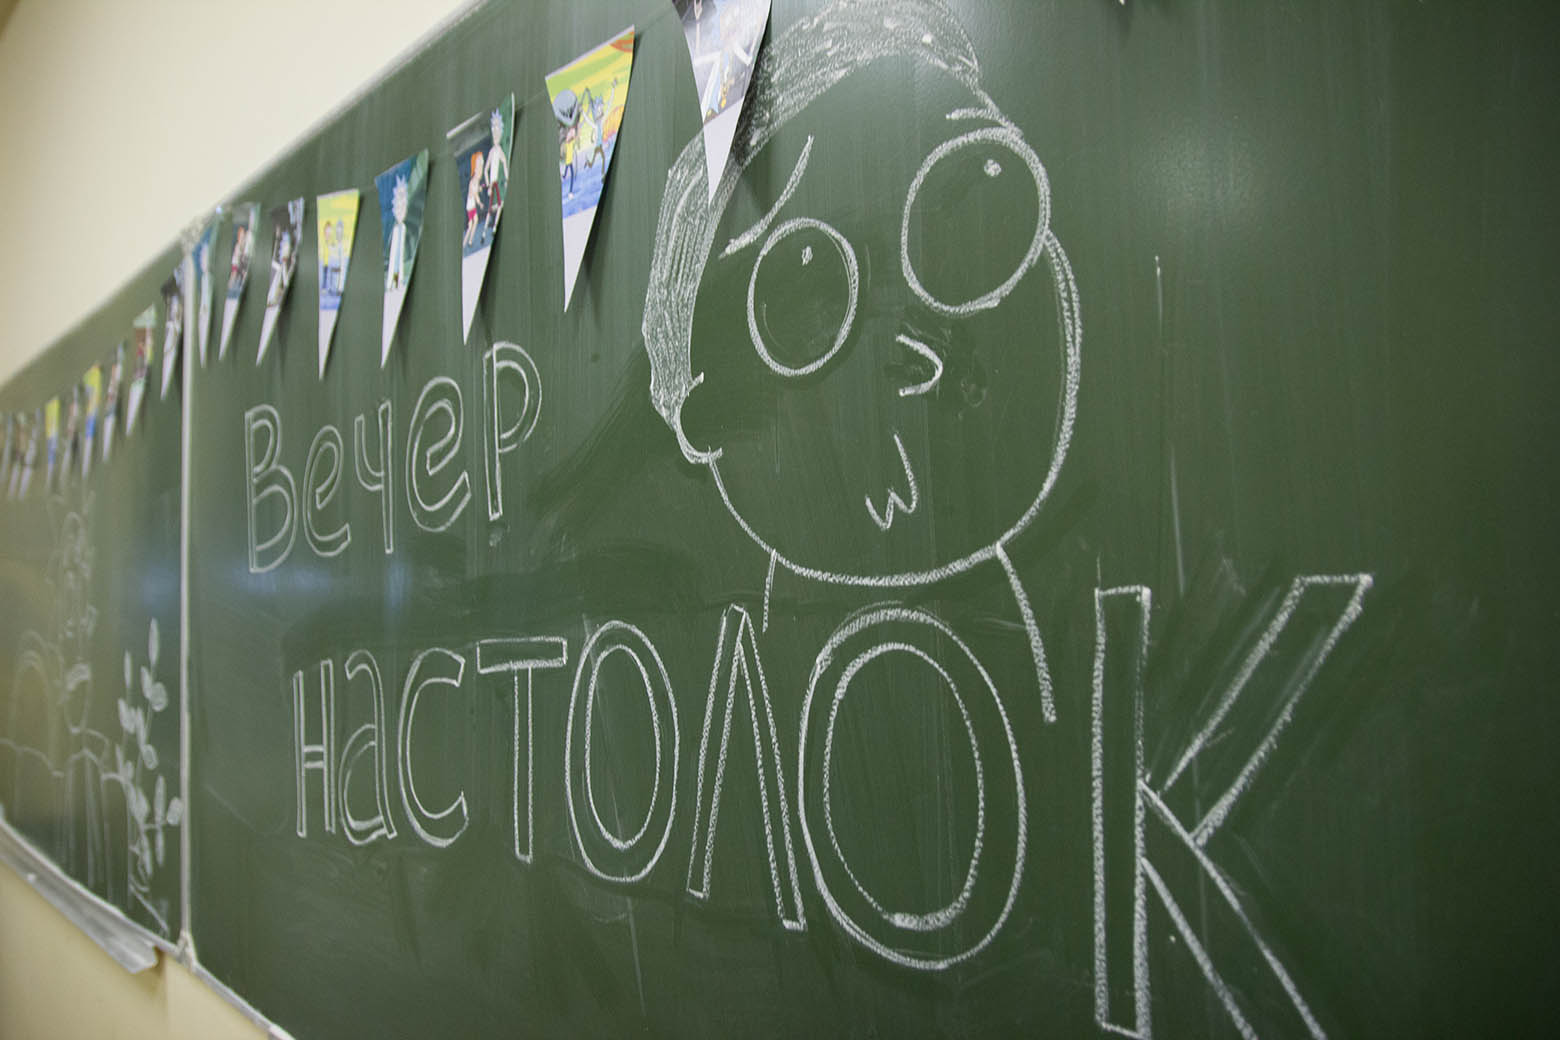 Вечер
настолок